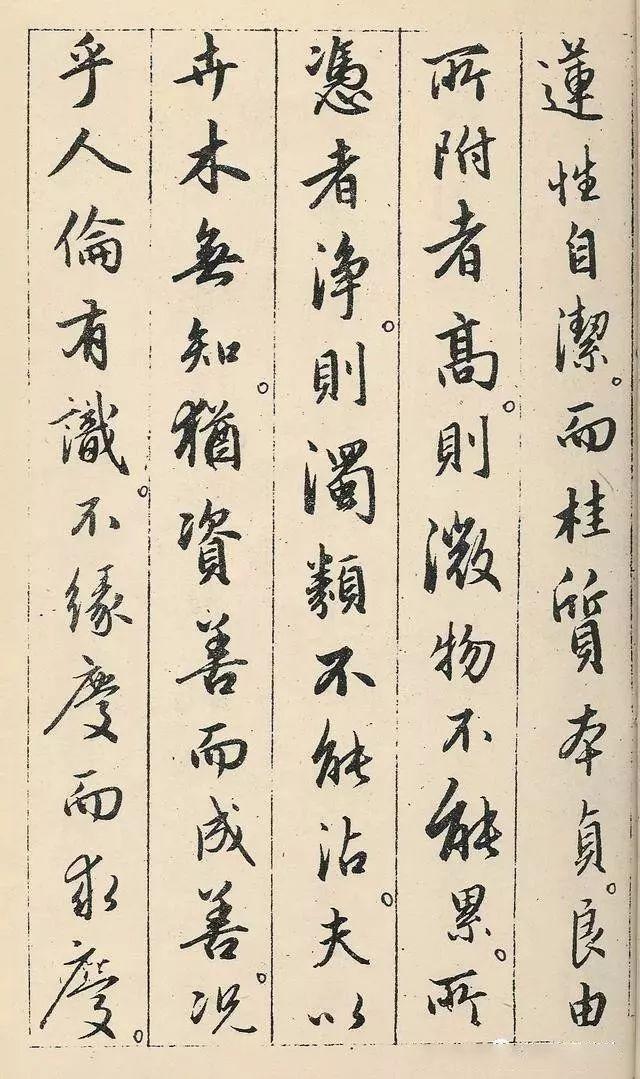 蓮性自潔。而桂質本貞。良由
所附者高。則微物不能累。所
憑者淨。則濁類不能沾。夫以
卉木無知。猶資善而成善。況
乎人倫有識。不緣慶而求慶。